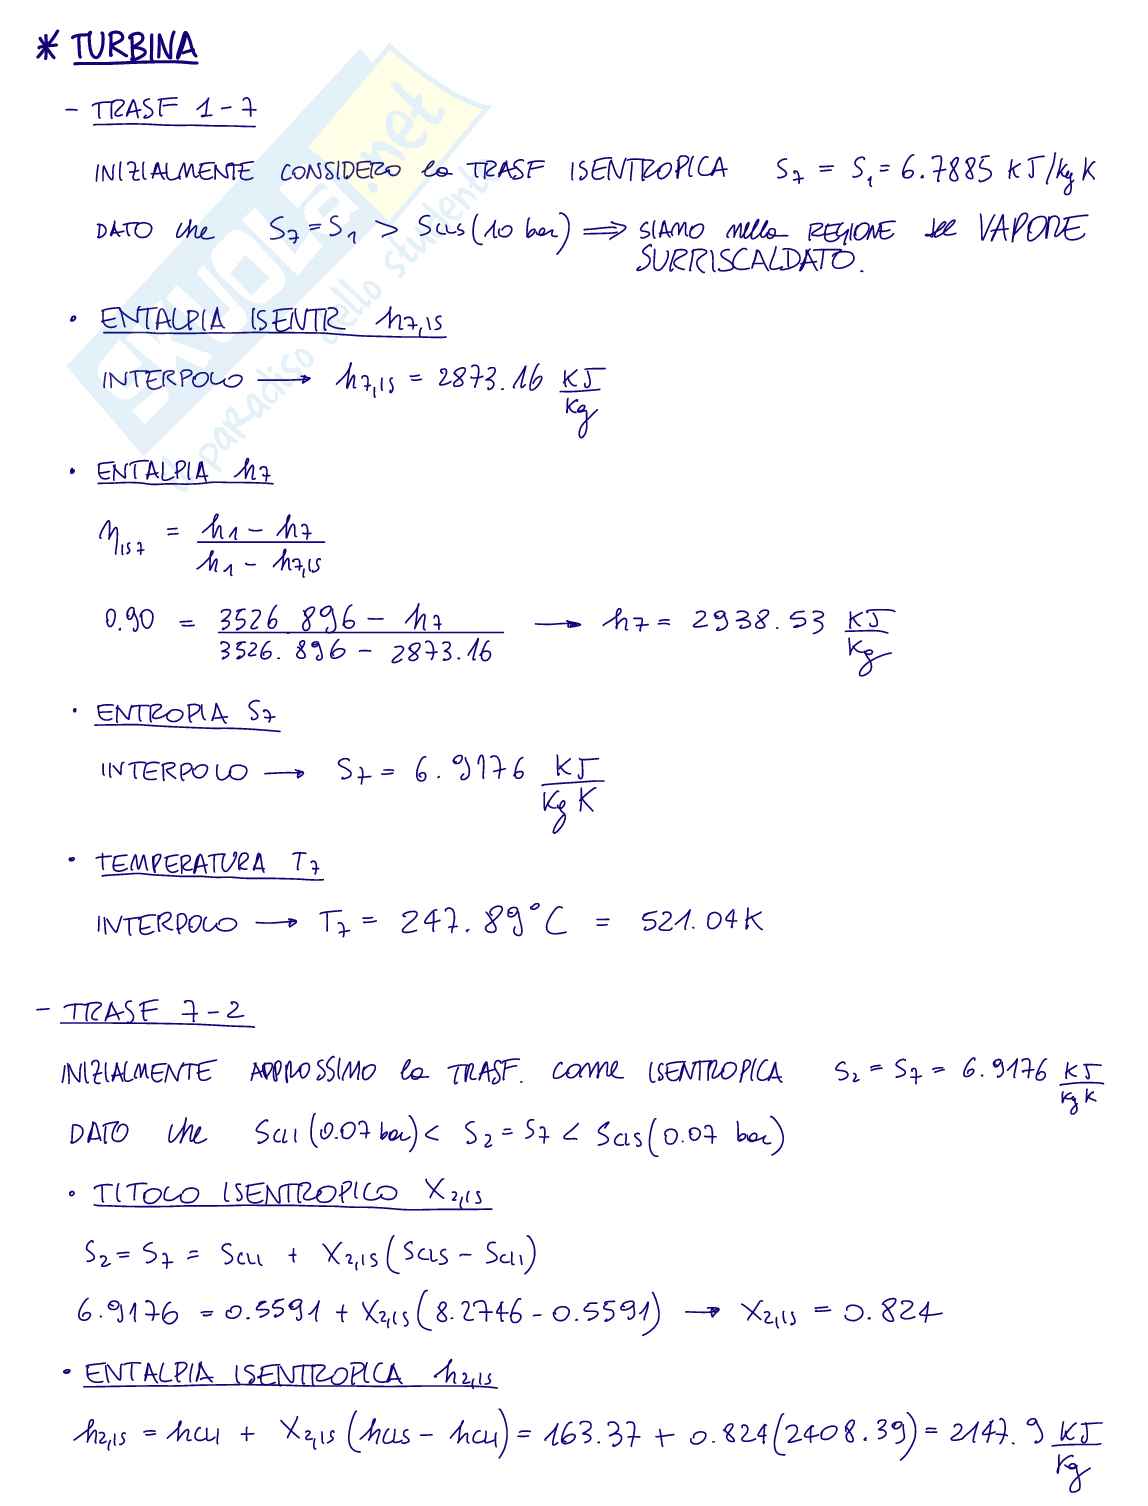 * TURBINA
- TRASF 1-7
INIZIALMENTE CONSIDERO la TRASF ISENTROPICA S7 = S1 = 6.7885 KJ/kg K
DATO che S7 = S1 > Scls (10 bar) ⟹ SIAMO nella REGIONE del VAPORE
SURRISCALDATO.
• ENTALPIA ISENTR h7,IS
INTERPOLO ⟶ h7,IS = 2873.16 KJ/Kg
• ENTALPIA h7
ηIS7 = (h1 - h7)/(h1 - h7,IS)
0.90 = (3526 896 - h7)/(3526.896 - 2873.16) ⟶ h7 = 2938.53 KJ/Kg
• ENTROPIA S7
INTERPOLO ⟶ S7 = 6.9176 KJ/Kg K
• TEMPERATURA T7
INTERPOLO ⟶ T7 = 247.89°C = 521.04K
- TRASF 7-2
INIZIALMENTE APPROSSIMO la TRASF. come ISENTROPICA S2 = S7 = 6.9176 KJ/Kg K
DATO che Scll (0.07 bar) < S2 = S7 < Scls (0.07 bar)
• TITOLO ISENTROPICO X2,IS
S2 = S7 = Scll + X2,IS (Scls - Scll)
6.9176 = 0.5591 + X2,IS (8.2746 - 0.5591) ⟶ X2,IS = 0.824
• ENTALPIA ISENTROPICA h2,IS
h2,IS = hcll + X2,IS (hcls - hcll) = 163.37 + 0.824 (2408.39) = 2147.9 KJ/Kg
SKUOLA.net
il paradiso dello studente